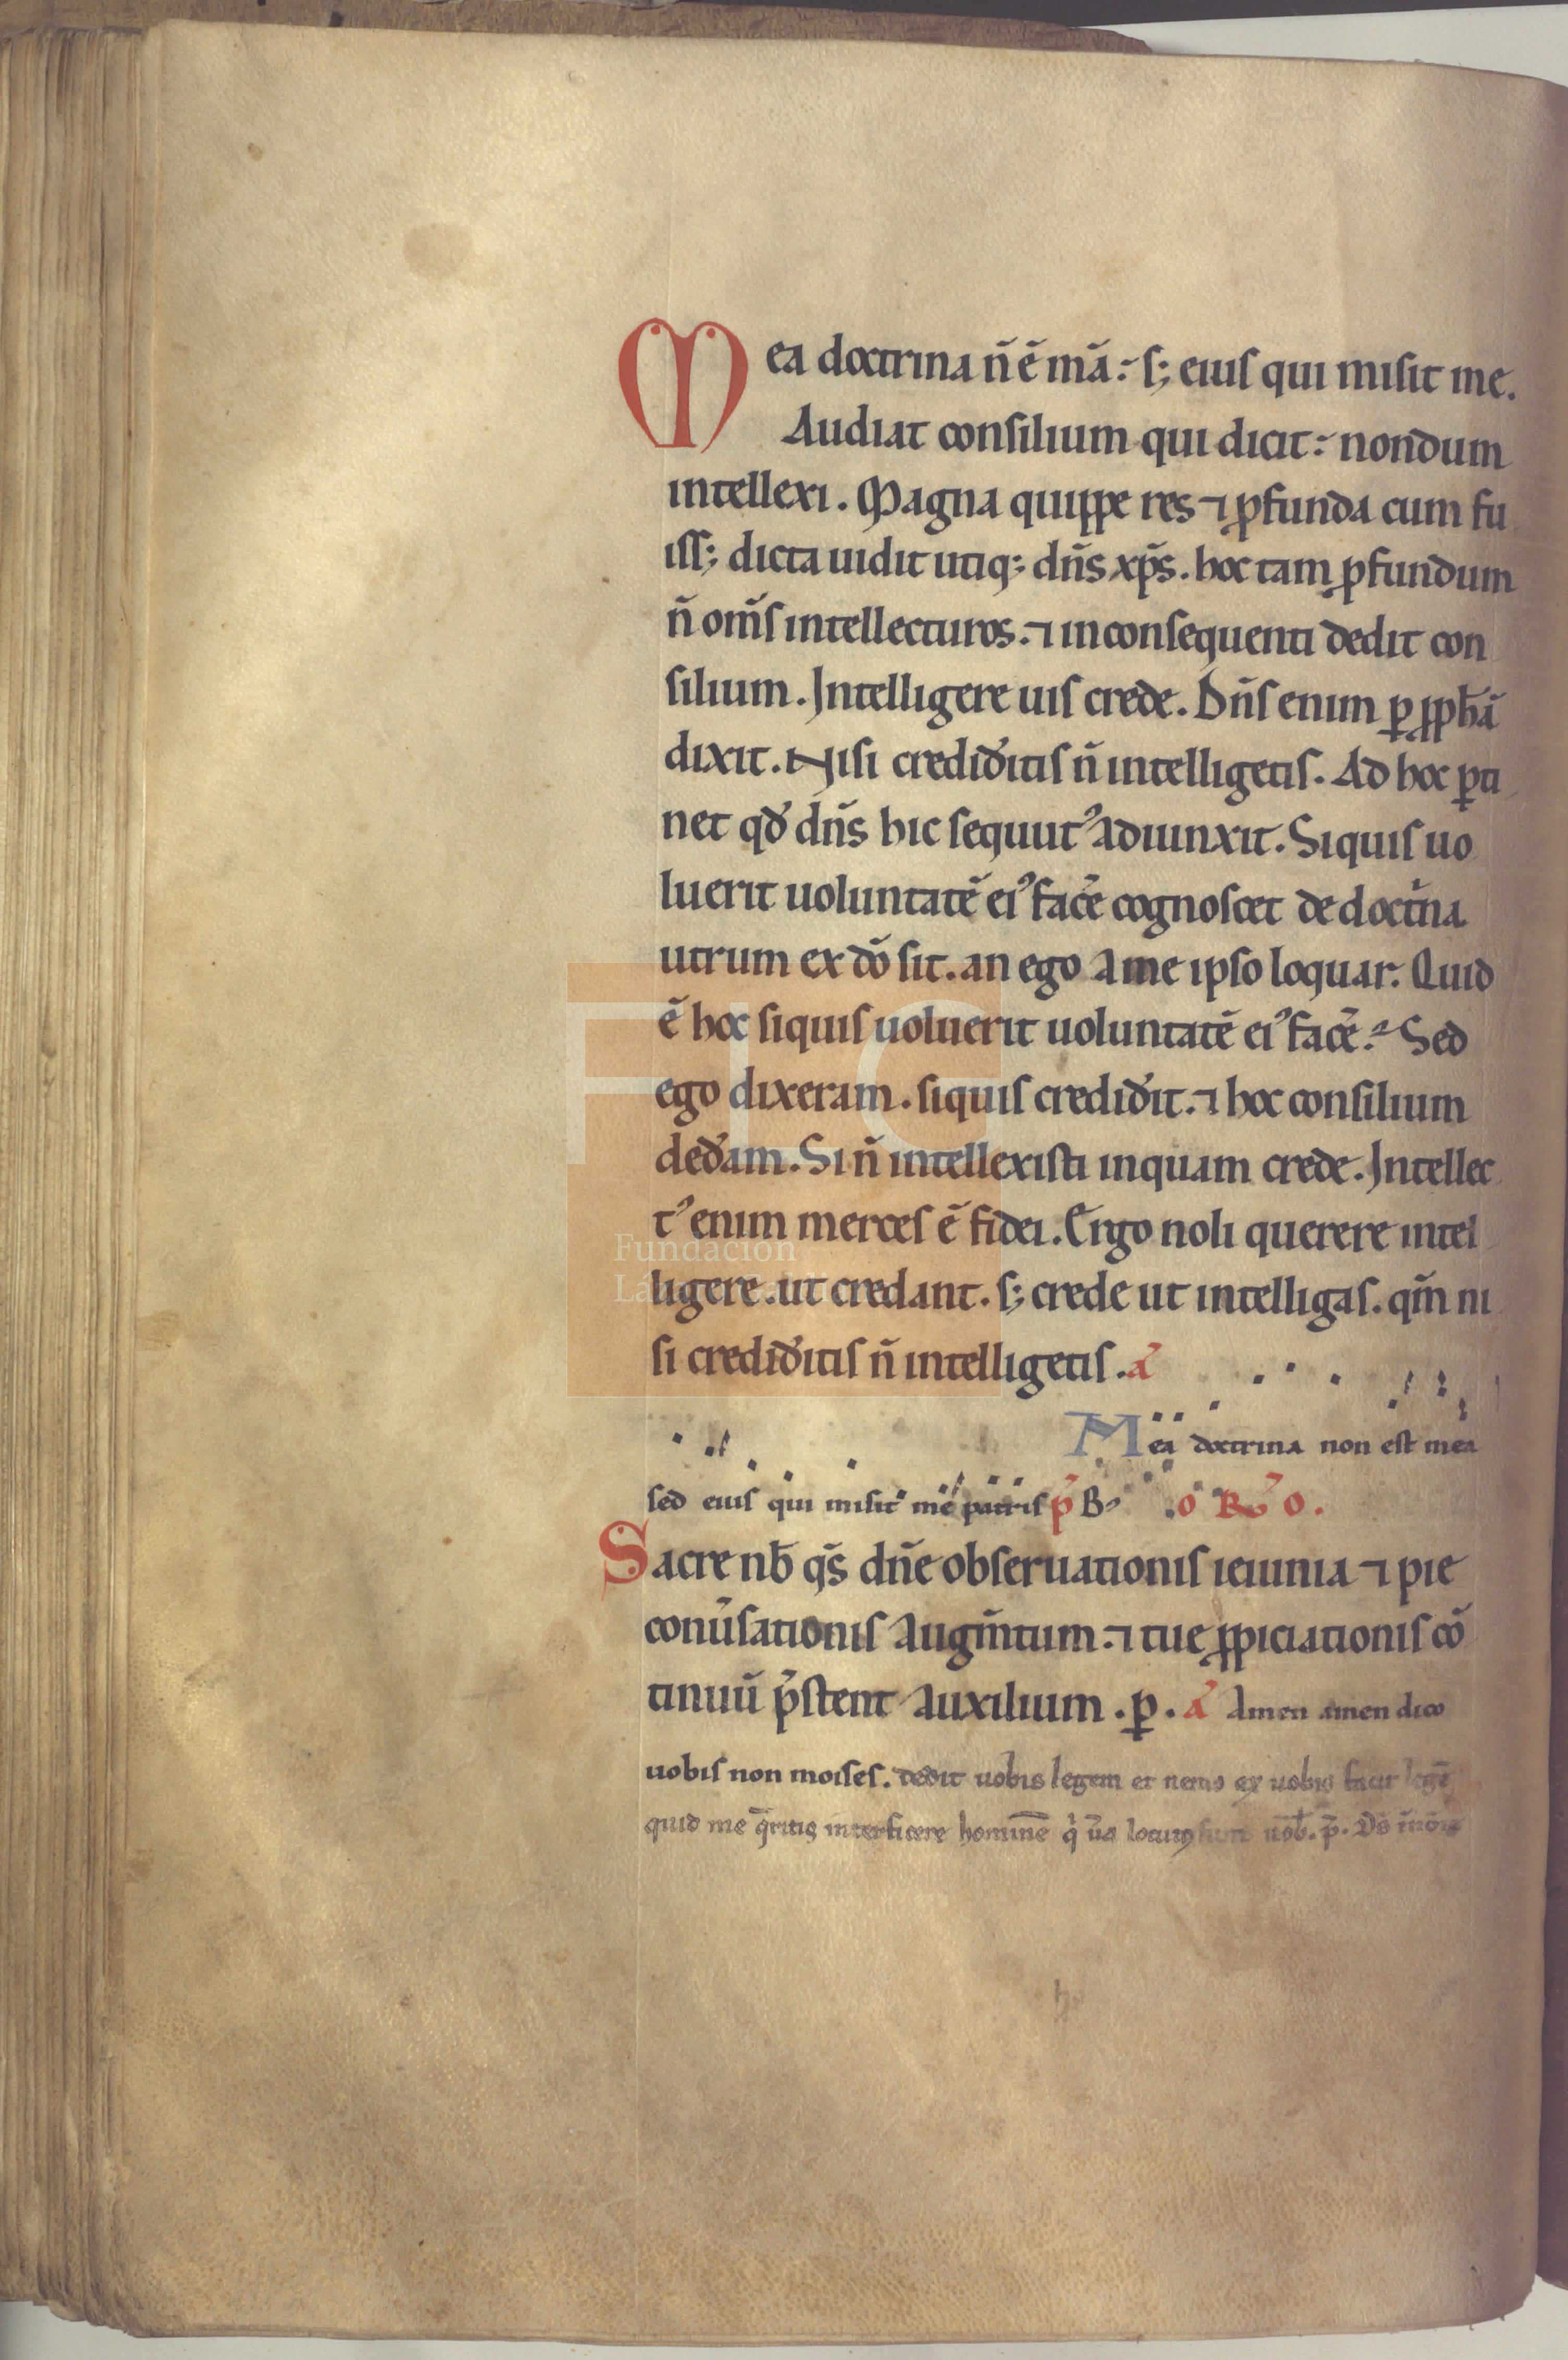 Mea doctrina n̄ ē mā. s; eius qui misit me.
Audiat consilium qui dicit: nondum
intellexi. Magna quippe res ⁊ ꝓfunda cum fu
iss; dicta uidit utiq; dn̄s xp̄s. hoc tam ꝓfundum
n̄ om̄s intellecturos. ⁊ in consequenti dedit con
silium. Intelligere uis crede. Dn̄s enim ꝑ ꝓph̄ā
dixit. Nisi credid̕itis n̄ intelligetis. Ad hoc ꝑti
net qd̕ dn̄s hic sequutꝰ adiunxit. Siquis uo
luerit uoluntatē eiꝰ fac̄e cognoscet de doct̍na
utrum ex dō sit. an ego a me ipso loquar. Quid
ē hoc siquis uoluerit uoluntatē eiꝰ fac̄e. Sed
ego dixeram. siquis credid̕it. ⁊ hoc consilium
ded̕am. Si n̄ intellexisti inquam crede. Intellec
tꝰ enim merces ē fidei. Ergo noli querere intel
ligere. ut credant. s; crede ut intelligas. qm̄ ni
si credid̕itis n̄ intelligetis. a̕
Mea doctrina non est mea
sed eius qui misit me patris p̕ B. o R o.
Sacre nb̄ qs̄ dn̄e obseruationis ieiunia ⁊ pie
conu̕sationis augm̄tum. ⁊ tue ꝓpiciationis cō
tinuū p̄stent auxilium. ꝑ. a̕ Amen amen dico
uobis non moises. dedit uobis legem et nemo ex uobis facit legē
quid me q̄ritis interficere hominē q̍ ūa locutꝰ sum uob̄. p̄. Ds̄
Fundación